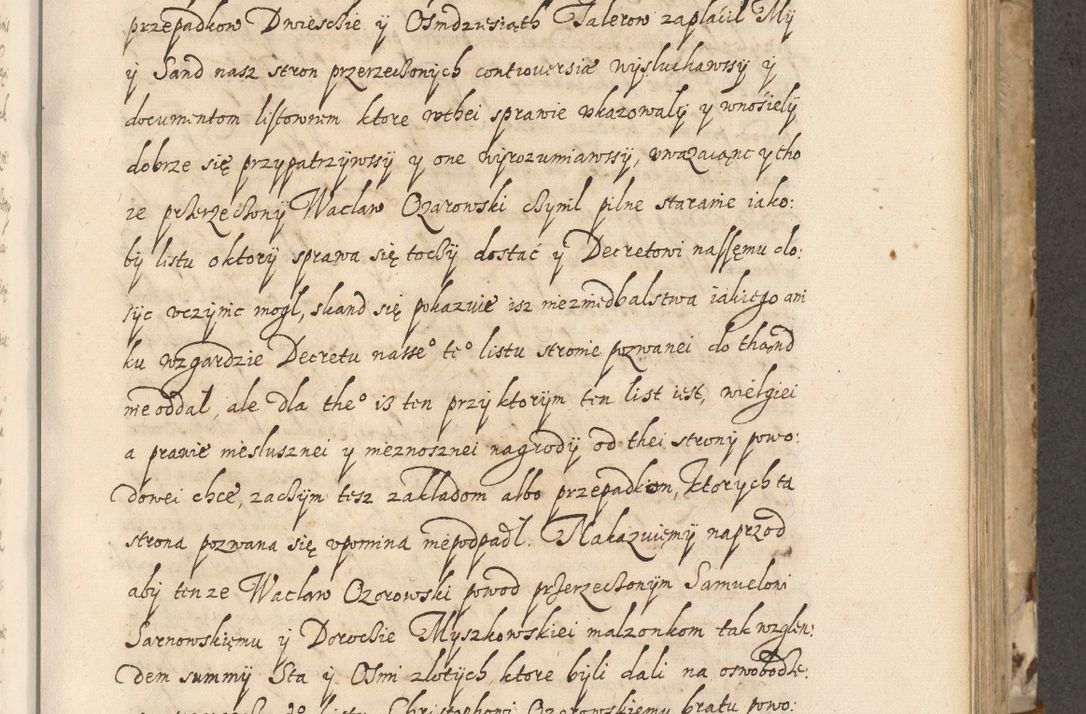 przepadkow Dwieschie ÿ Osmdziesiąth Talerow zaplacił My
ÿ Sand nasz stron przerzeczonÿch controuersiæ wÿsłuchawssÿ ÿ
documentom listownem ktore wthei sprawie vkazowalÿ y wnosielÿ
dobrze się przypatrzÿwssÿ y one wÿrozumiawssÿ, vwazaiąnc y tho
ze przerzeczonÿ Wacław Ozarowski czÿnil pilne staranie iako:
bÿ listu o ktorÿ sprawa się toczÿ dostać ÿ Decretowi nassęmu do:
sÿc vczÿnic mogł, skand się pokazuie isz niezniedbalstwa iakiego ani
ku wzgardzie Decretu nasse° te° listu stronie pozwanei do thąnd
nie oddal, ale dla the° is ten przy ktorÿm ten list iest, wielgiei
a prawie niesłusznei y nieznosznei nagrodÿ od thei stronÿ powo:
dowei chce, zaczÿm tesz zakladom albo przepadkom, których ta
strona pozwana się vpomina niepodpadł. Nakazuiemÿ naprzod
abÿ tenze Wacław Ozorowski powod przerzeczonÿm Samuelowi
Sarnowskięmu ÿ Dorocie Myszkowskiei malzonkom tak wzglen:
dem summÿ Sta ÿ Osmi złotÿch, ktore bÿli dali na oswobodze:
listu Christophowi Ozorowskiemu bratu powo: